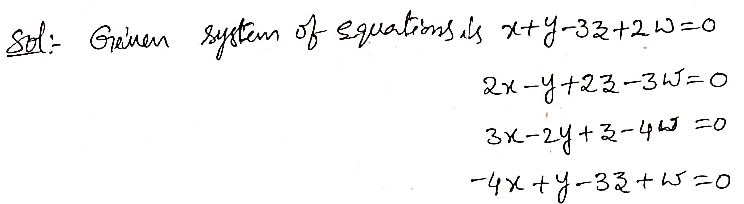 Sol:- Given system of equations is x+y-3z+2w=0
2x-y+2z-3w=0
3x-2y+z-4w=0
-4x+y-3z+w=0